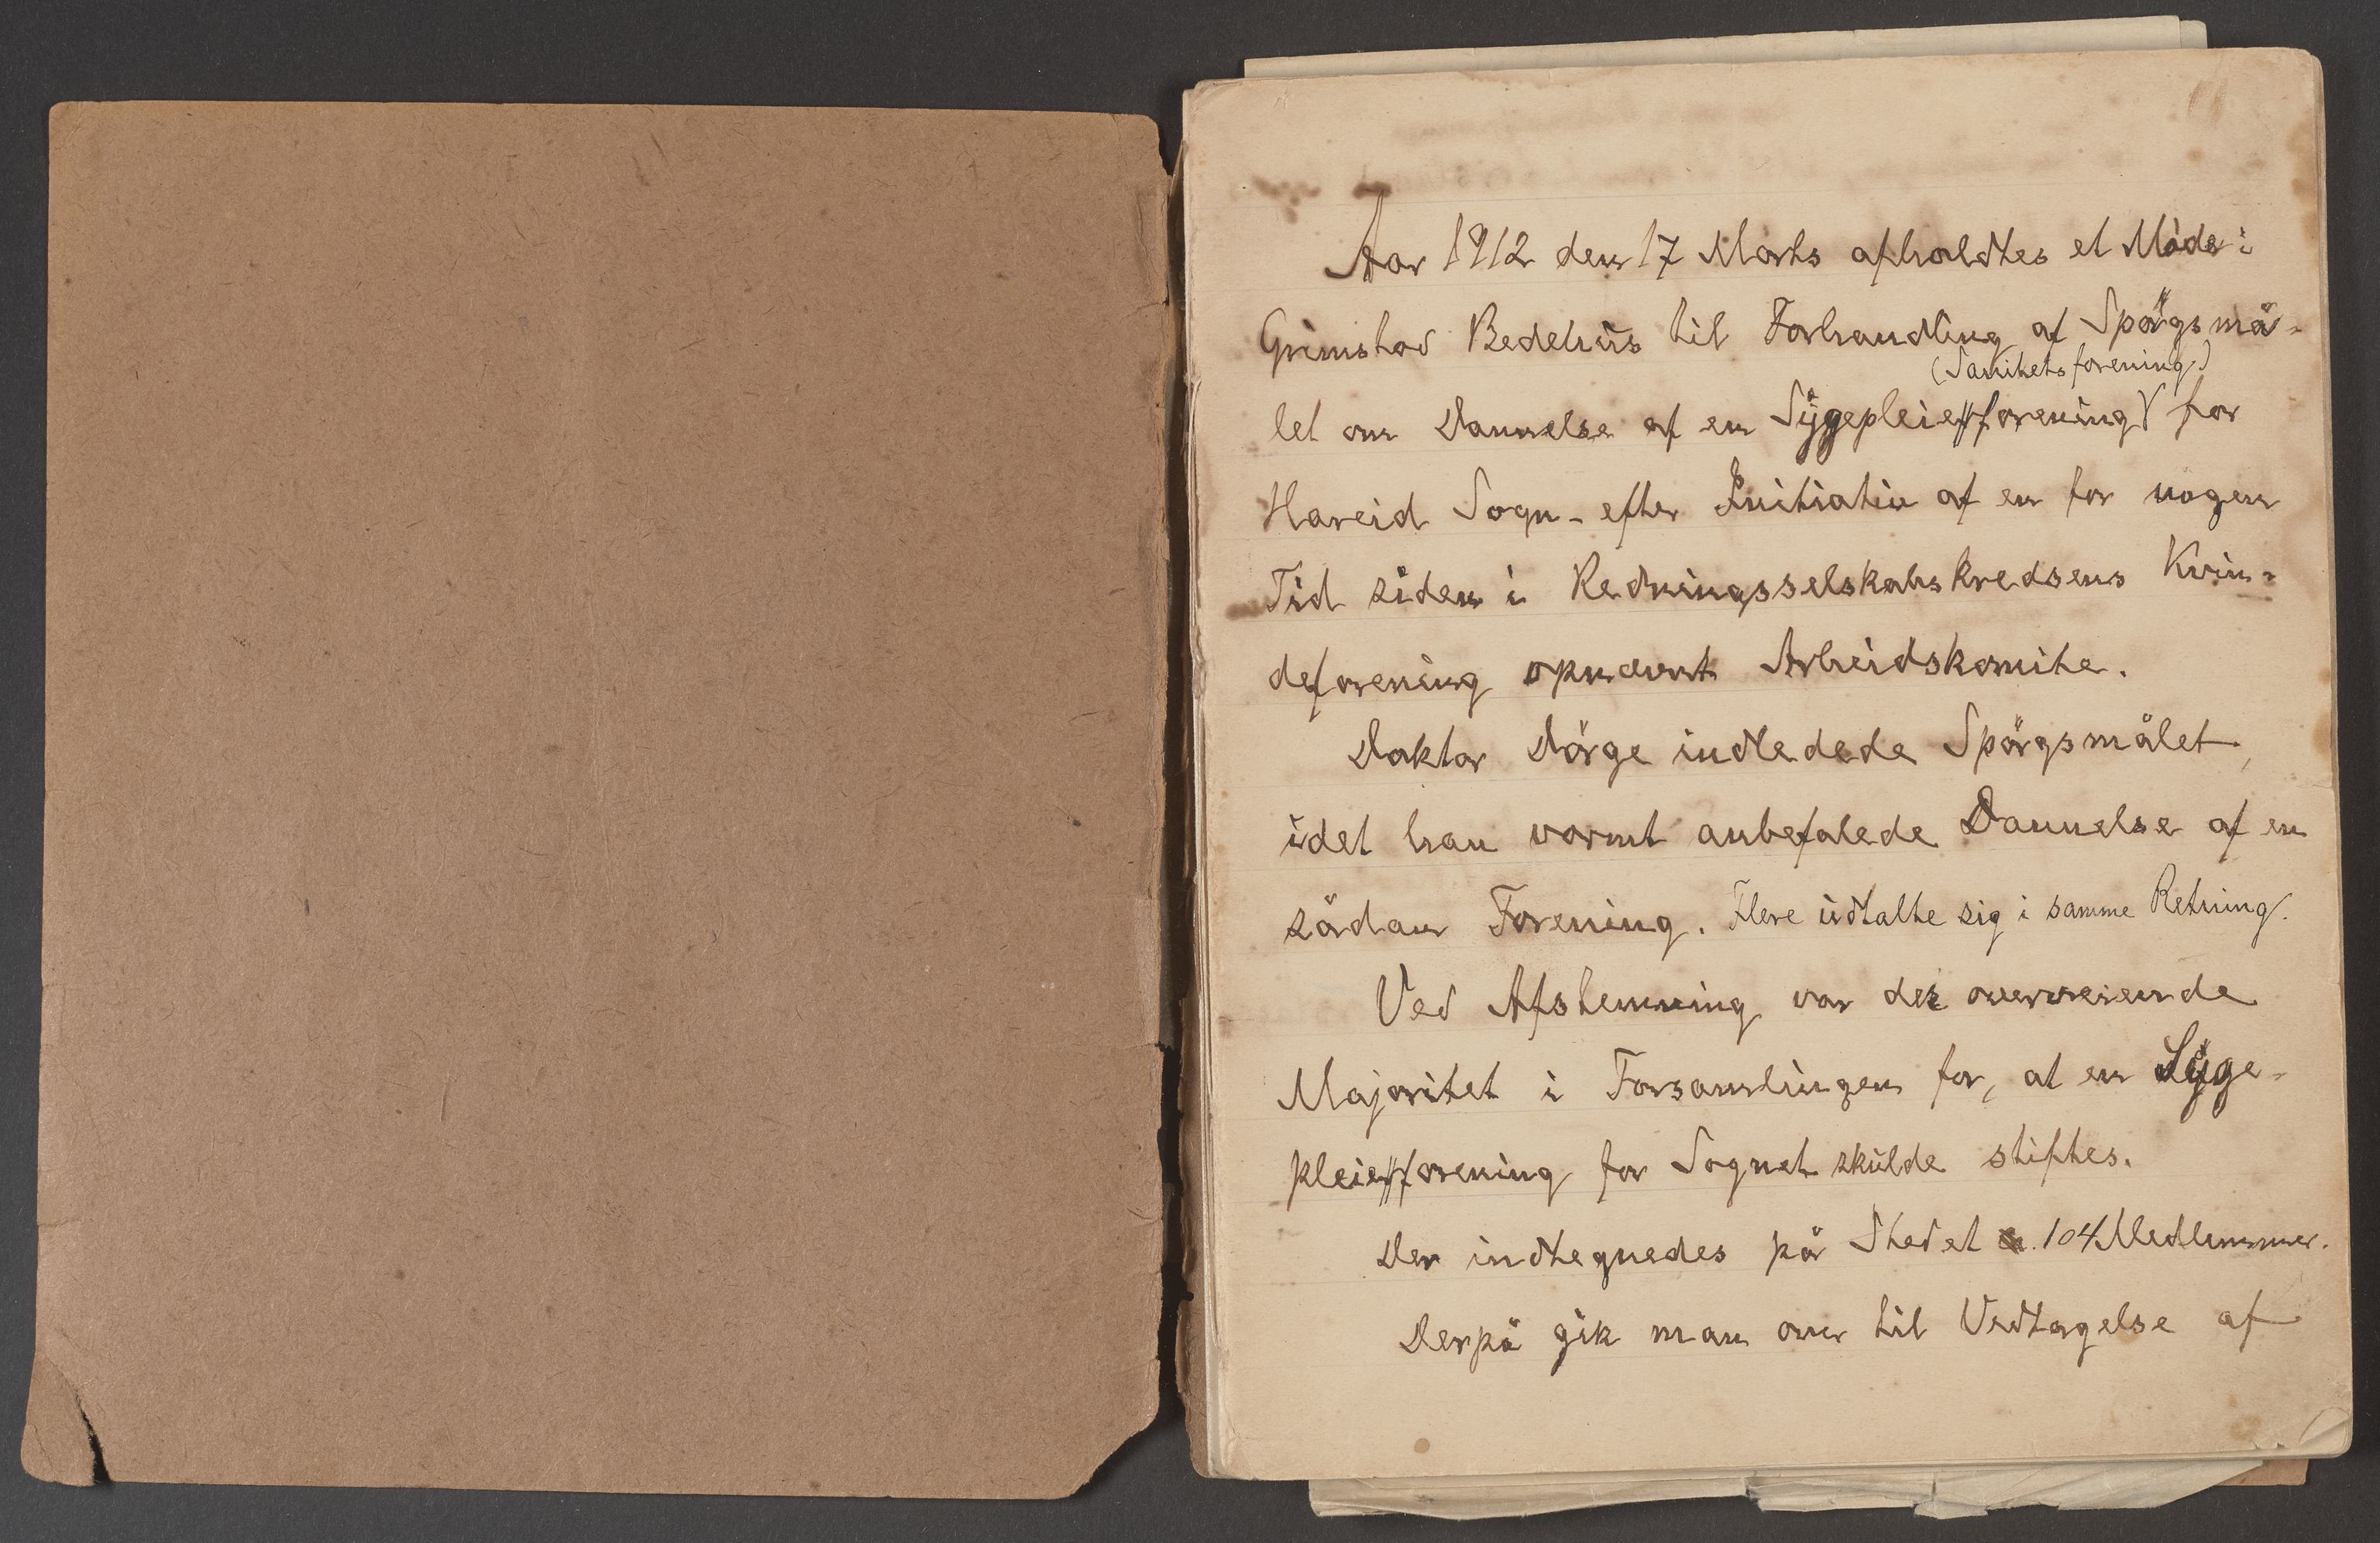 Aar 1912 den 17 Marts afholdtes et Möde i
Grimstad Bedehus til Forhandling af Spörgsmå-
(Sanitetsforening)
let om Dannelse af en Sygepleieforening for
Hareid Sogn - efter Initiativ af en for nogen
Tid siden i Redningsselskabskredsens Kvin-
deforening opnævnt Arbeidskomite.
Doktor Dörge indledede Spörgsmålet,
idet han varmt anbefalede Dannelse af en
sådan Forening. Flere udtalte sig i samme Retning.
Ved Afstemning var det overveiende
Majoritet i Forsamlingen for, at en Syge-
pleieforening for Sognet skulde stiftes.
Der indtegnedes på Stedet 104 Medlemmer.
Derpå gik man over til Vedtagelse af